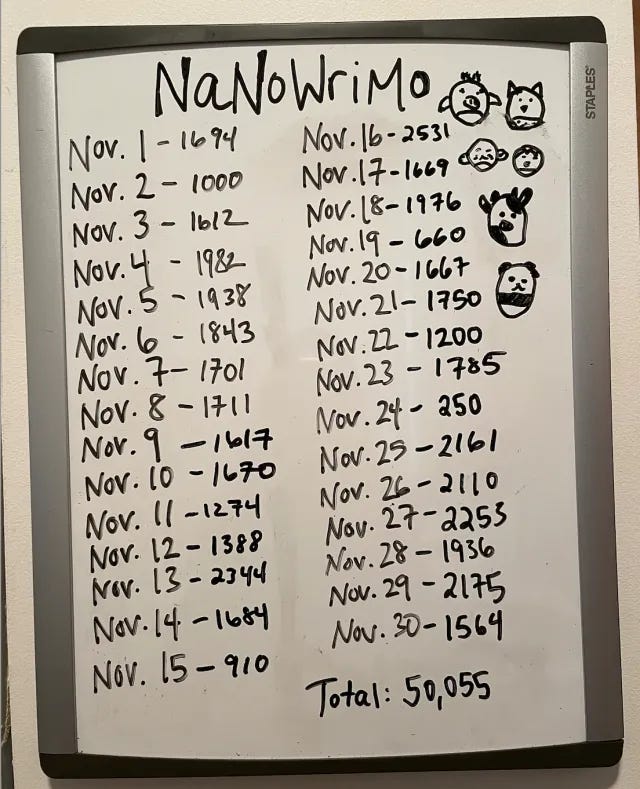 NaNoWriMo
STAPLES
Nov. 1 - 1694
Nov. 2 - 1000
Nov. 3 - 1612
Nov. 4 - 1982
Nov. 5 - 1938
Nov. 6 - 1843
Nov. 7 - 1701
Nov. 8 - 1711
Nov. 9 - 1617
Nov. 10 - 1670
Nov. 11 - 1274
Nov. 12 - 1388
Nov. 13 - 2344
Nov. 14 - 1684
Nov. 15 - 910
Nov. 16 - 2531
Nov. 17 - 1669
Nov. 18 - 1976
Nov. 19 - 660
Nov. 20 - 1667
Nov. 21 - 1750
Nov. 22 - 1200
Nov. 23 - 1785
Nov. 24 - 250
Nov. 25 - 2161
Nov. 26 - 2110
Nov. 27 - 2253
Nov. 28 - 1936
Nov. 29 - 2175
Nov. 30 - 1564
Total: 50,055